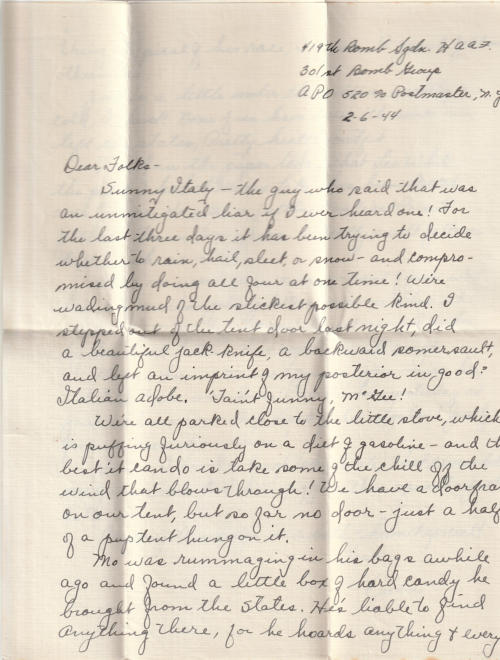 419th Bomb Sqdn. HAAF.
301st Bomb Group
APO 520 % Postmaster, N.Y
2-6-44
Dear Folks-
Sunny Italy - the guy who said that was
an unmitigated liar if I ever heard one! For
the last three days it has been trying to decide
whether to rain, hail, sleet, or snow - and compro-
mised by doing all four at one time! We're
wading mud of the stickiest possible kind. I
stepped out of the tent door last night, did
a beautiful jack knife, a backward somersault,
and left an imprint of my posterior in good
Italian adobe. 'Taint funny, McGee!
We're all parked close to the little stove, which
is puffing furiously on a diet of gasoline - and th
best it can do is take some of the chill of the
wind that blows through! We have a doorfra
on our tent, but so far no door - just a half
of a pup tent hung on it.
Mo was rummaging in his bags awhile
ago and found a little box of hard candy he
brought from the States. He's liable to find
anything there, for he hoards anything & every